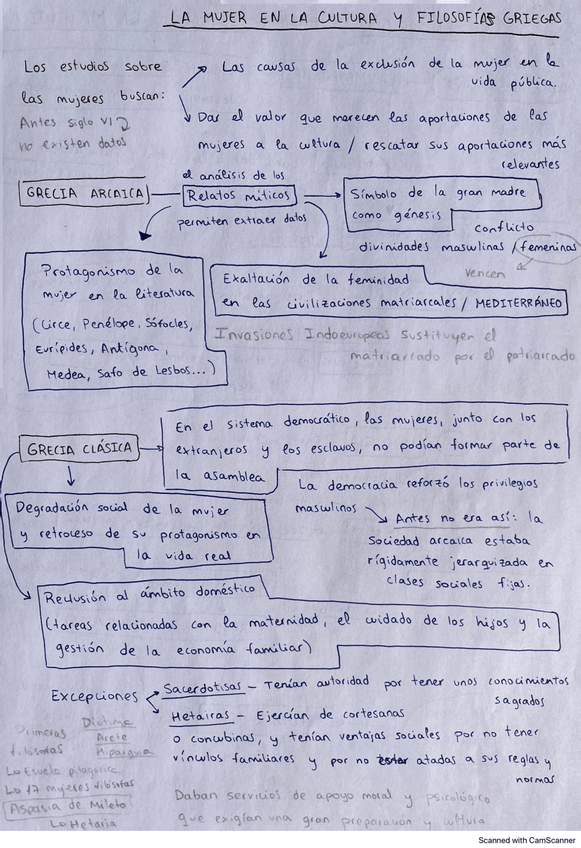 LA MUJER EN LA CULTURA Y FILOSOFÍAS GRIEGAS
Los estudios sobre
las mujeres buscan:
Antes siglo VI
no existen datos
Las causas de la exclusión de la mujer en la
vida pública.
Dar el valor que merecen las aportaciones de las
mujeres a la cultura / rescatar sus aportaciones más
relevantes
GRECIA ARCAICA
el análisis de los
Relatos míticos
permiten extraer datos
Símbolo de la gran madre
como génesis
conflicto
divinidades masculinas / femeninas
vencen
Protagonismo de la
mujer en la literatura
(Circe, Penélope, Sófocles,
Eurípides, Antígona,
Medea, Safo de Lesbos...)
Exaltación de la feminidad
en las civilizaciones matriarcales / MEDITERRÁNEO
Invasiones Indoeuropeas sustituyen el
matriarcado por el patriarcado
GRECIA CLÁSICA
En el sistema democrático, las mujeres, junto con los
extranjeros y los esclavos, no podían formar parte de
la asamblea
La democracia reforzó los privilegios
masculinos
Antes no era así: la
sociedad arcaica estaba
rígidamente jerarquizada en
clases sociales fijas.
Degradación social de la mujer
y retroceso de su protagonismo en
la vida real
Reclusión al ámbito doméstico
(tareas relacionadas con la maternidad, el cuidado de los hijos y la
gestión de la economía familiar)
Excepciones
Sacerdotisas - Tenían autoridad por tener unos conocimientos
sagrados
Hetairas - Ejercían de cortesanas
o concubinas, y tenían ventajas sociales por no tener
vínculos familiares y por no estar atadas a sus reglas y
normas
Daban servicios de apoyo moral y psicológico
que exigían una gran preparación y cultura
Primeras
filósofas
Diotima
Arete
Hiparquia
La Escuela pitagórica
Las 17 mujeres filósofas
Aspasia de Mileto
La Hetaria
Scanned with CamScanner